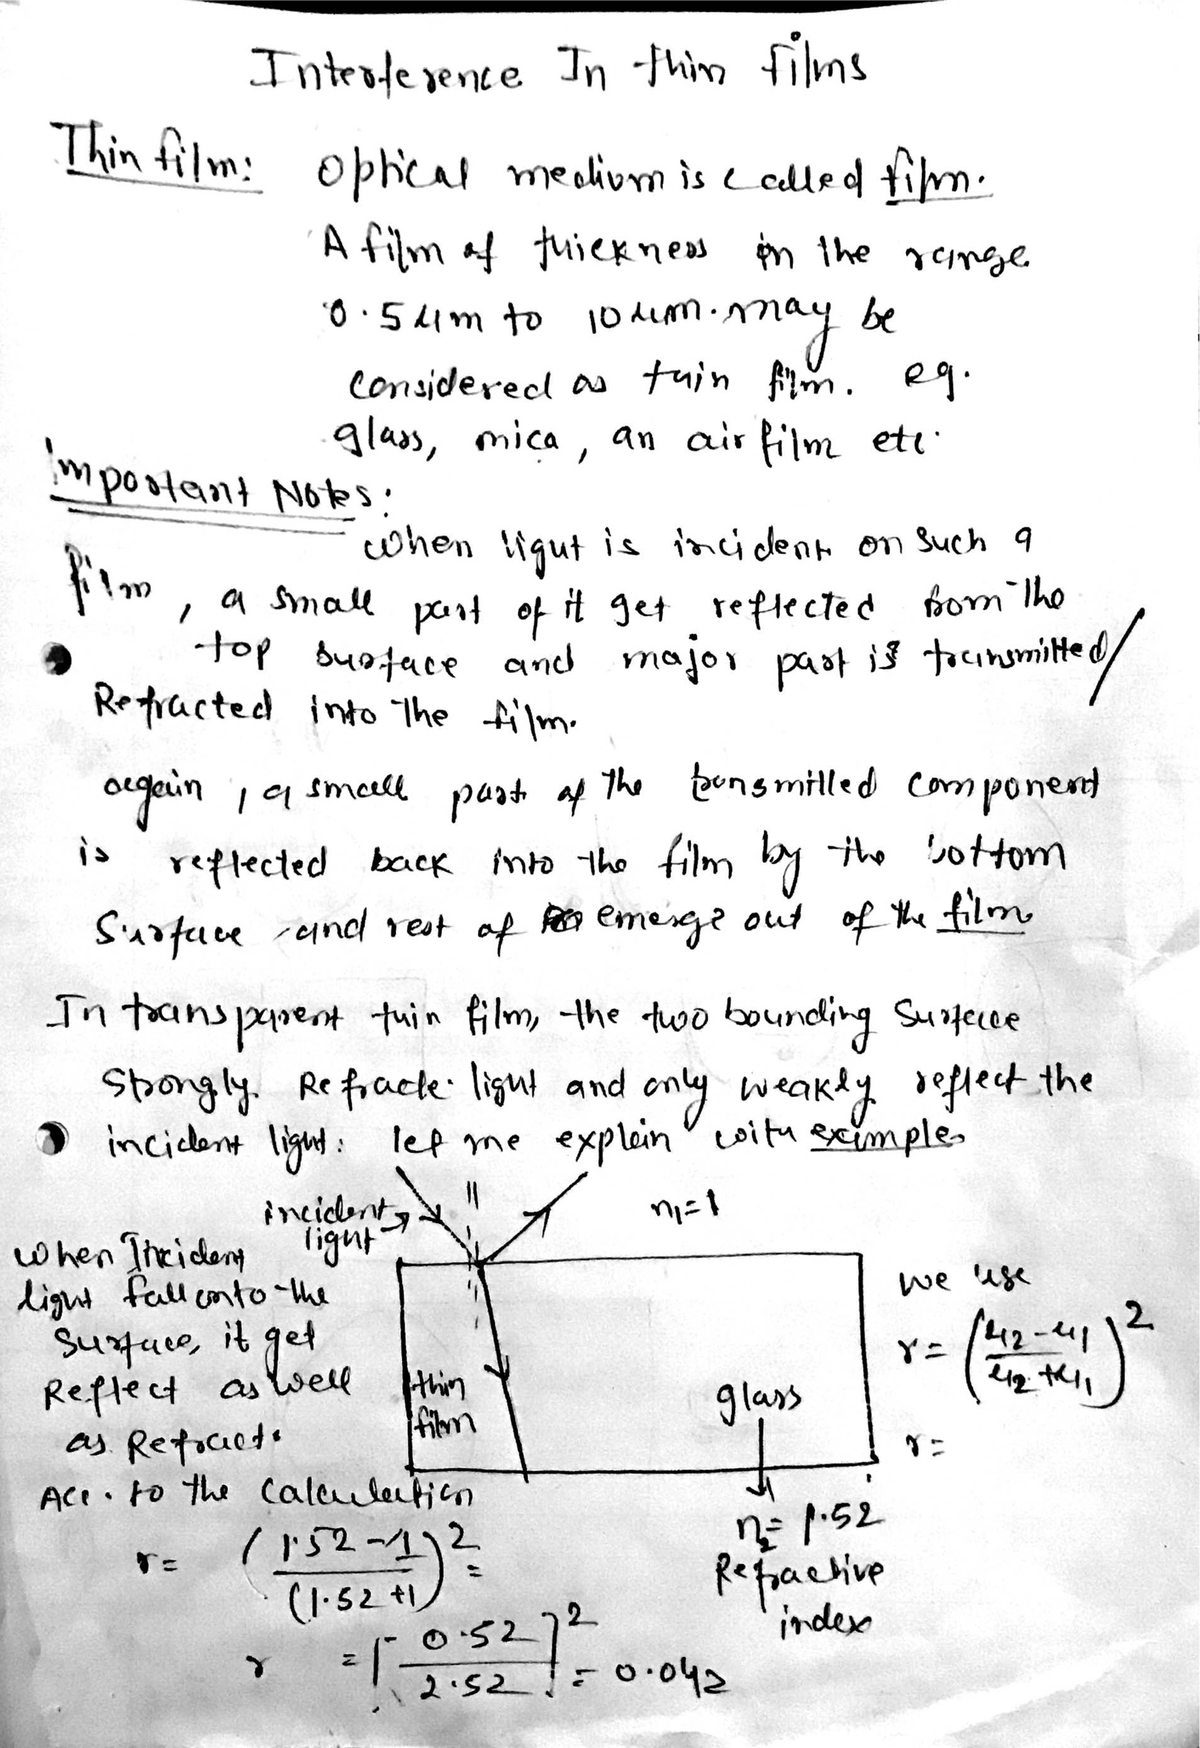 Interference In thin films
Thin film: Optical medium is called film.
A film of thickness in the range
0.5 μm to 10 μm. may be
Considered as thin film. eg.
glass, mica, an air film etc.
Important Notes:
when light is incident on such a
film, a small part of it get reflected from the
top surface and major part is transmitted/
Refracted into the film.
again, a small part of the transmitted component
is reflected back into the film by the bottom
Surface and rest of emerge out of the film
In transparent thin film, the two bounding Surface
Strongly Refracte light and only weakly reflect the
incident light: let me explain with example.
incident light
n₁=1
when Incident
light fall onto the
Surface, it get
Reflect as well
as Refract.
thin
film
glass
n₂= 1.52
Refractive
index
we use
r= (μ2-μ1/μ2+μ1)²
r=
Acc. to the Calculation
r= (1.52-1/(1.52+1)² =
r = [0.52/2.52]² = 0.042